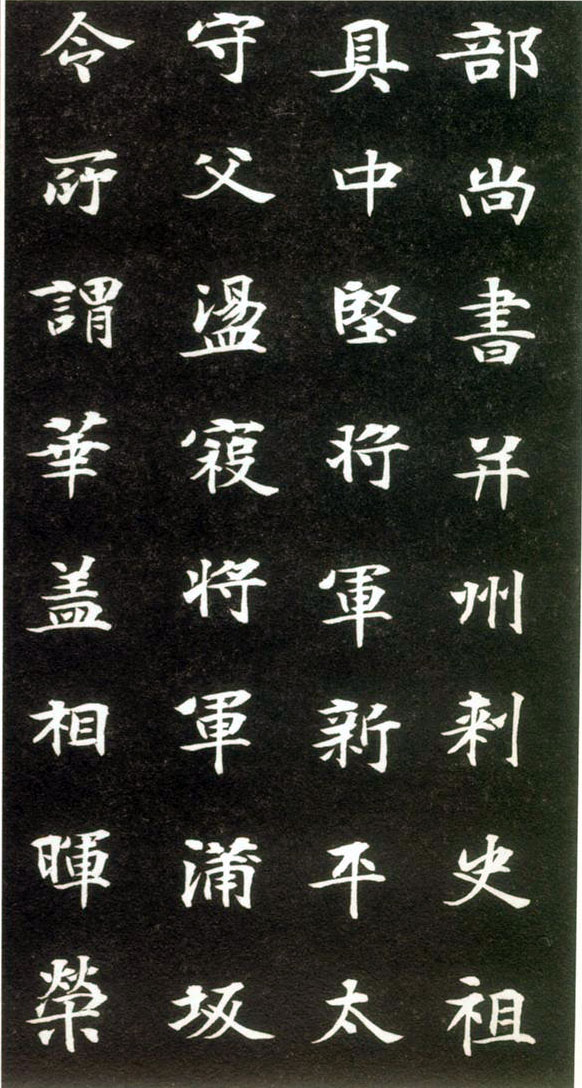 部尚書并州刺史祖
具中堅将軍新平太
守父盪寇將軍蒲坂
令所謂華盖相暉榮